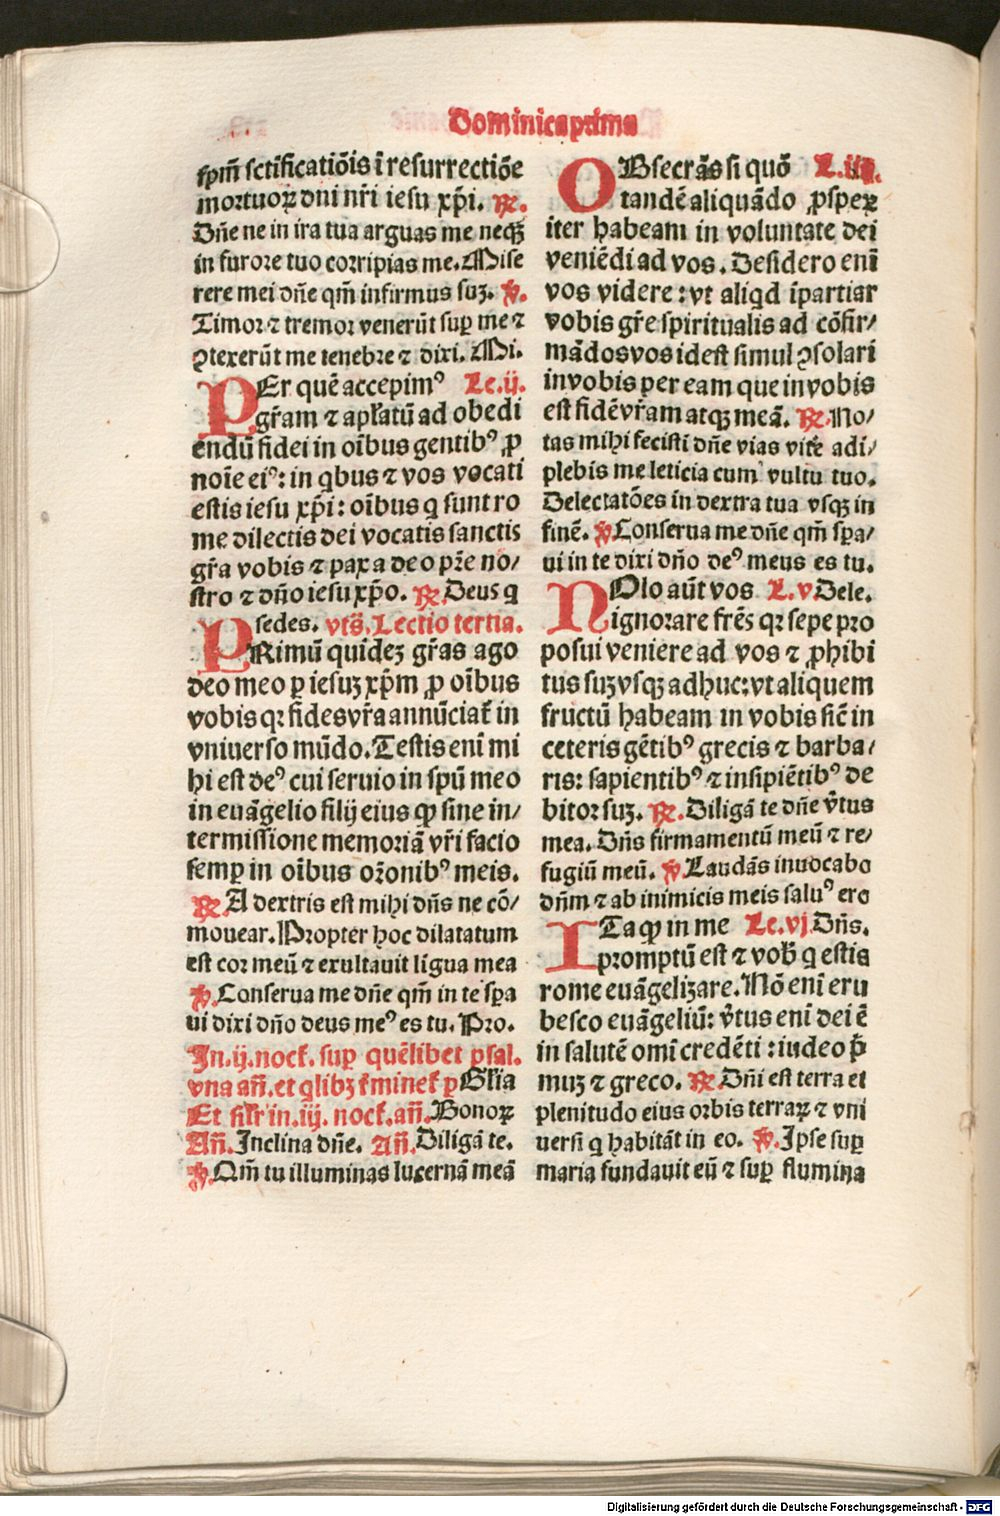 Dominica prima
sp̄m sctificatiōis ī resurrectiōe
mortuoꝝ dni nr̄i iesu xp̄i. ℟.
Dn̄e ne in ira tua arguas me neqꝫ
in furore tuo corripias me. Mise
rere mei dn̄e qm̄ infirmus suꝫ. ℣.
Timor ⁊ tremor venerūt suꝑ me ⁊
ꝯtexerūt me tenebre ⁊ dixi. Mi.
PEr quē accepimꝰ Lc.ij.
gr̄am ⁊ apl̄atū ad obedi
endū fidei in oībus gentibꝰ ꝓ
noīe eiꝰ: in qbus ⁊ vos vocati
estis iesu xp̄i: oībus q sunt ro
me dilectis dei vocatis sanctis
gr̄a vobis ⁊ pax a deo pr̄e no/
stro ⁊ dn̄o iesu xp̄o. ℟. Deus q
sedes. vts̄. Lectio tertia.
PRimū quideꝫ gr̄as ago
deo meo ꝑ iesuꝫ xp̄m ꝓ oībus
vobis qꝛ fides vr̄a annūciat̄ in
vniuerso mūdo. Testis enī mi
hi est deꝰ cui seruio in spū meo
in euāgelio filij eius ꝙ sine in/
termissione memoriā vr̄i facio
semꝑ in oībus or̄onibꝰ meis.
℟. A dextris est mihi dn̄s ne cō/
mouear. Propter hoc dilatatum
est cor meū ⁊ exultauit līgua mea
℣. Conserua me dn̄e qm̄ in te spa
ui dixi dn̄o deus meꝰ es tu. Pro.
In .ij. noct̄. suꝑ quēlibet psal.
vna an̄. et qlibꝫ t̄minet̄ ꝑ Gl̄ia
Et sil̄r in .iij. noct̄. an̄. Bonoꝝ
An̄. Inclina dn̄e. An̄. Diligā te.
℣. Qm̄ tu illuminas lucernā meā
OBsecrās si quō L.iiij.
tandē aliquādo ꝓspeꝝ
iter habeam in voluntate dei
veniēdi ad vos. Desidero enī
vos videre: vt aliqd īpartiar
vobis gr̄e spiritualis ad cōfir/
mādos vos idest simul ꝯsolari
in vobis per eam que in vobis
est fidē vr̄am atqꝫ meā. ℟. No/
tas mihi fecisti dn̄e vias vite adi/
plebis me leticia cum vultu tuo.
Delectatōes in dextra tua vsqꝫ in
finē. ℣ Conserua me dn̄e qm̄ spa/
ui in te dixi dn̄o deꝰ meus es tu.
NOlo aūt vos L.v Dele.
ignorare fr̄es qꝛ sepe pro
posui veniere ad vos ⁊ ꝓhibi
tus suꝫ vsqꝫ adhuc: vt aliquem
fructū habeam in vobis sic̄ in
ceteris gētibꝰ grecis ⁊ barba/
ris: sapientibꝰ ⁊ insipiētibꝰ de
bitor suꝫ. ℟. Diligā te dn̄e v̄tus
mea. Dn̄s firmamentū meū ⁊ re/
fugiū meū. ℣ Laudās inuocabo
dn̄m ⁊ ab inimicis meis saluꝰ ero
ITa ꝙ in me Lc.vj Dn̄s.
promptū est ⁊ vob̄ q estis
rome euāgelizare. Nō enī eru
besco euāgeliū: v̄tus enī dei ē
in salutē omī credēti: iudeo p̄
muꝫ ⁊ greco. ℟. Dn̄i est terra et
plenitudo eius orbis terraꝝ ⁊ vni
uersi q habitāt in eo. ℣. Ipse suꝑ
maria fundauit eū ⁊ suꝑ flumina
Digitalisierung gefördert durch die Deutsche Forschungsgemeinschaft - DFG